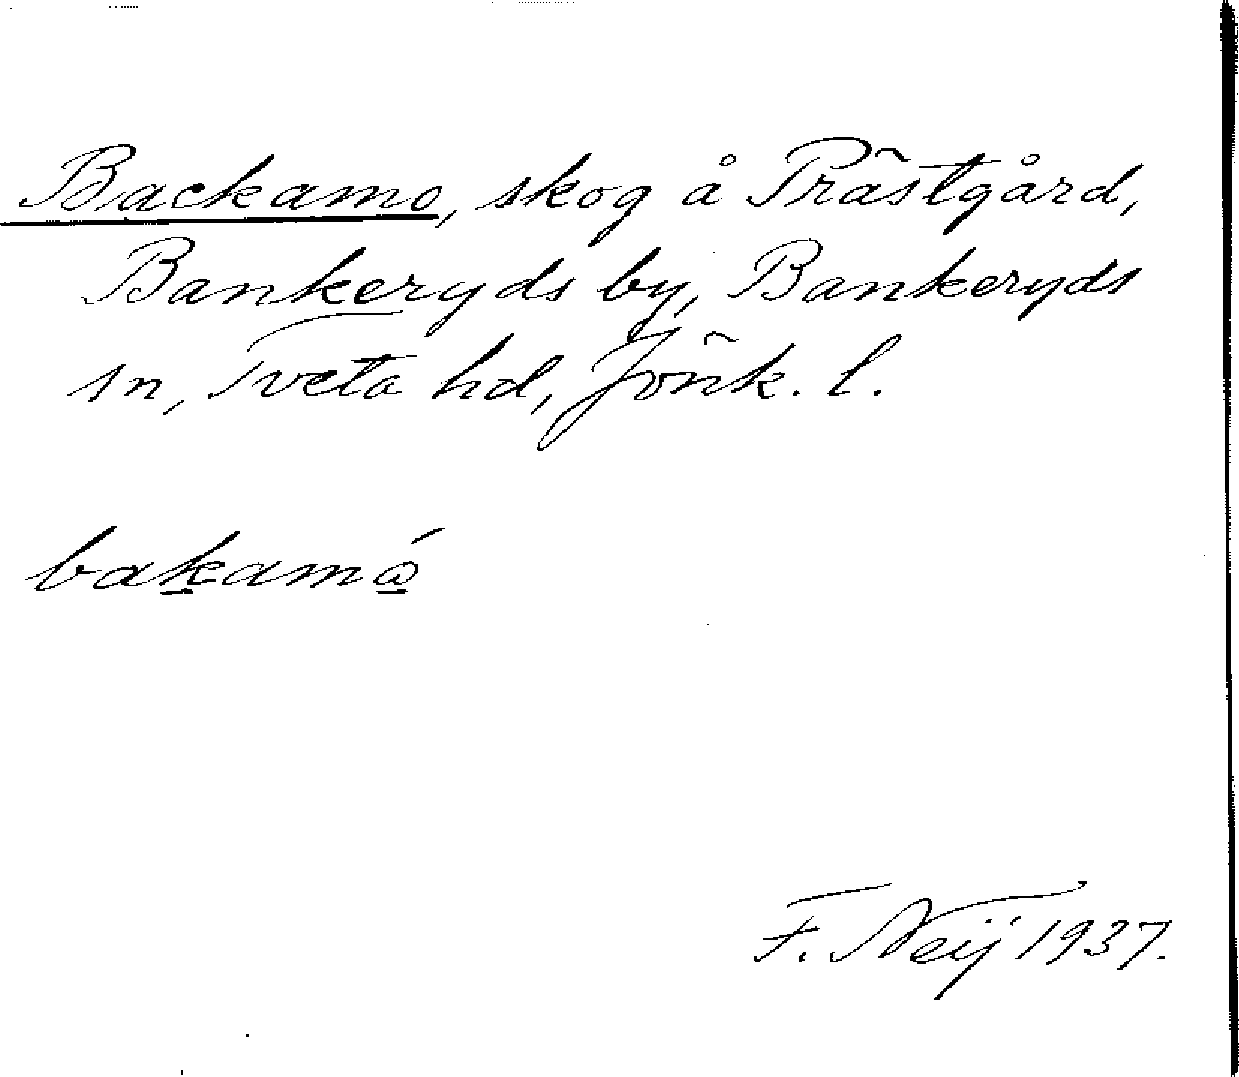 Backamo, skog å Prästgård,
Bankeryds by, Bankeryds
sn, Tveta hd, Jönk. l.
bakamó
F. Neij 1937.